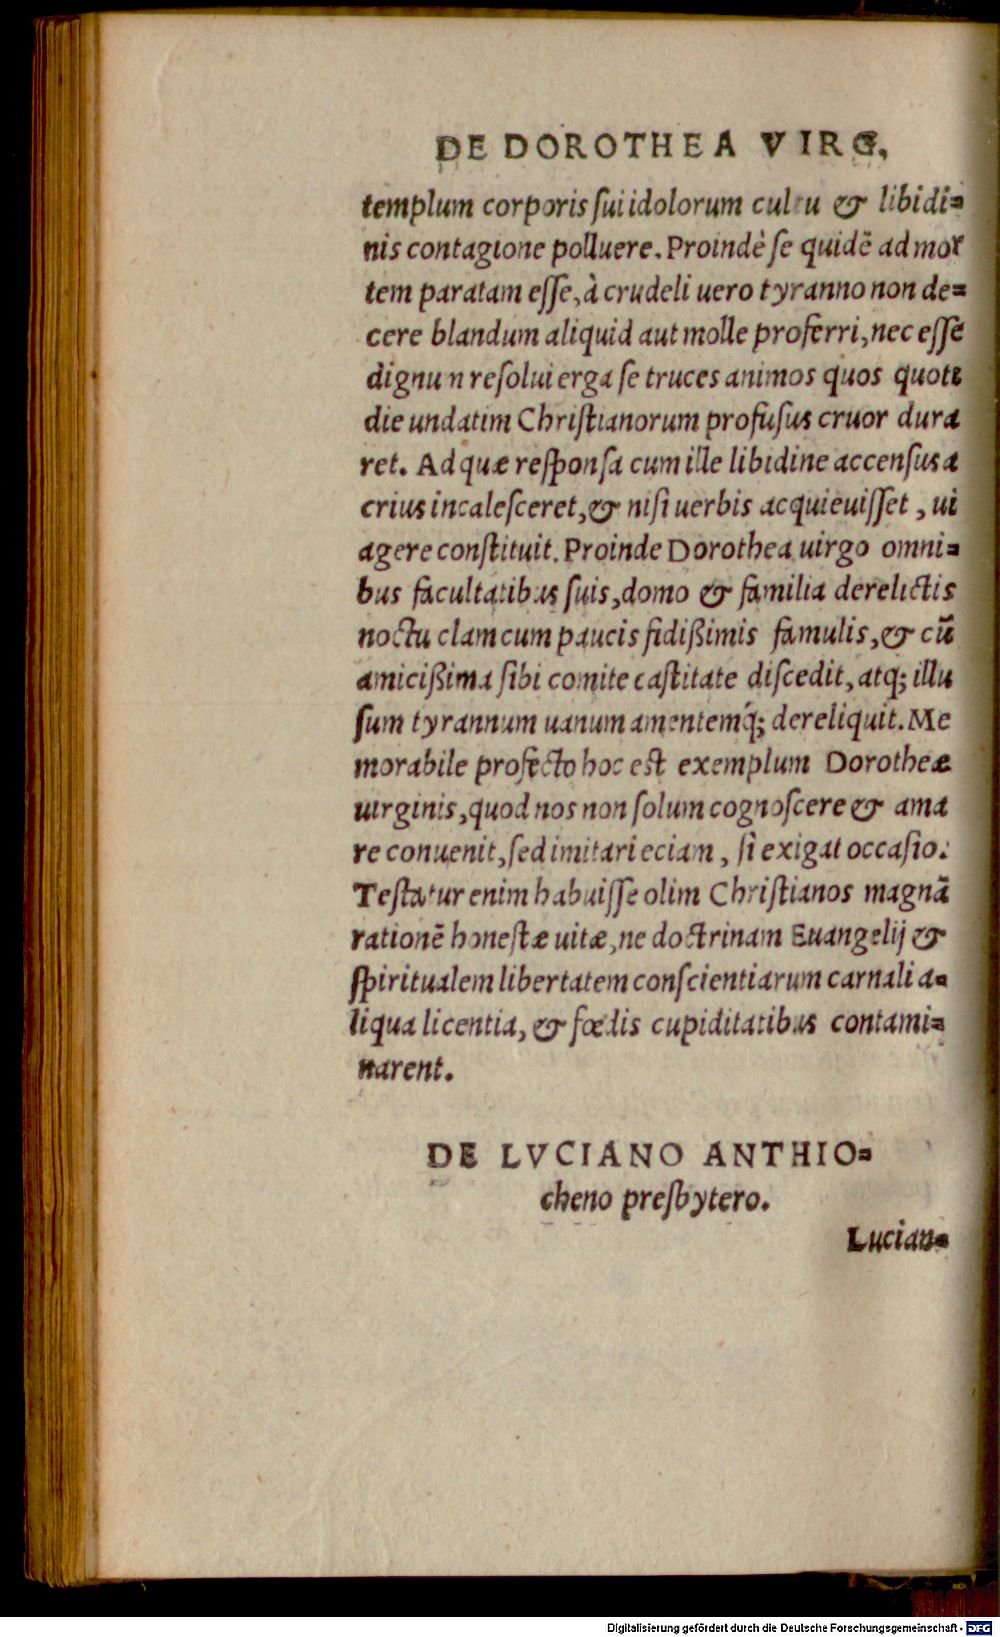 DE DOROTHEA VIRG,
templum corporis ſui idolorum cultu & libidi=
nis contagione polluere. Proindè ſe quidē ad mor
tem paratam eſſe, à crudeli uero tyranno non de=
cere blandum aliquid aut molle proferri, nec eſſe
dignum reſolui erga ſe truces animos quos quoti
die undatim Chriſtianorum profuſus cruor dura
ret. Ad quæ reſponſa cum ille libidine accenſus a
crius incaleſceret, & niſi uerbis acquieuiſſet, ui
agere conſtituit. Proinde Dorothea uirgo omni=
bus facultatibus ſuis, domo & familia derelictis
noctu clam cum paucis fidißimis famulis, & cū
amicißima ſibi comite caſtitate diſcedit, atq; illu
ſum tyrannum uanum amentemq́; dereliquit. Me
morabile profecto hoc eſt exemplum Dorotheæ
uirginis, quod nos non ſolum cognoſcere & ama
re conuenit, ſed imitari eciam, ſi exigat occaſio.
Teſtatur enim habuiſſe olim Chriſtianos magnā
rationē honeſtæ uitæ, ne doctrinam Euangelij &
ſpiritualem libertatem conſcientiarum carnali a=
liqua licentia, & fœdis cupiditatibus contami=
narent.
DE LVCIANO ANTHIO=
cheno preſbytero.
Lucian=
Digitalisierung gefördert durch die Deutsche Forschungsgemeinschaft - DFG